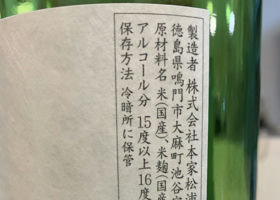 製造者 株式会社本家松浦
徳島県鳴門市大麻町池谷字
原材料名 米(国産)、米麹(国産
アルコール分 15度以上16度
保存方法 冷暗所に保管